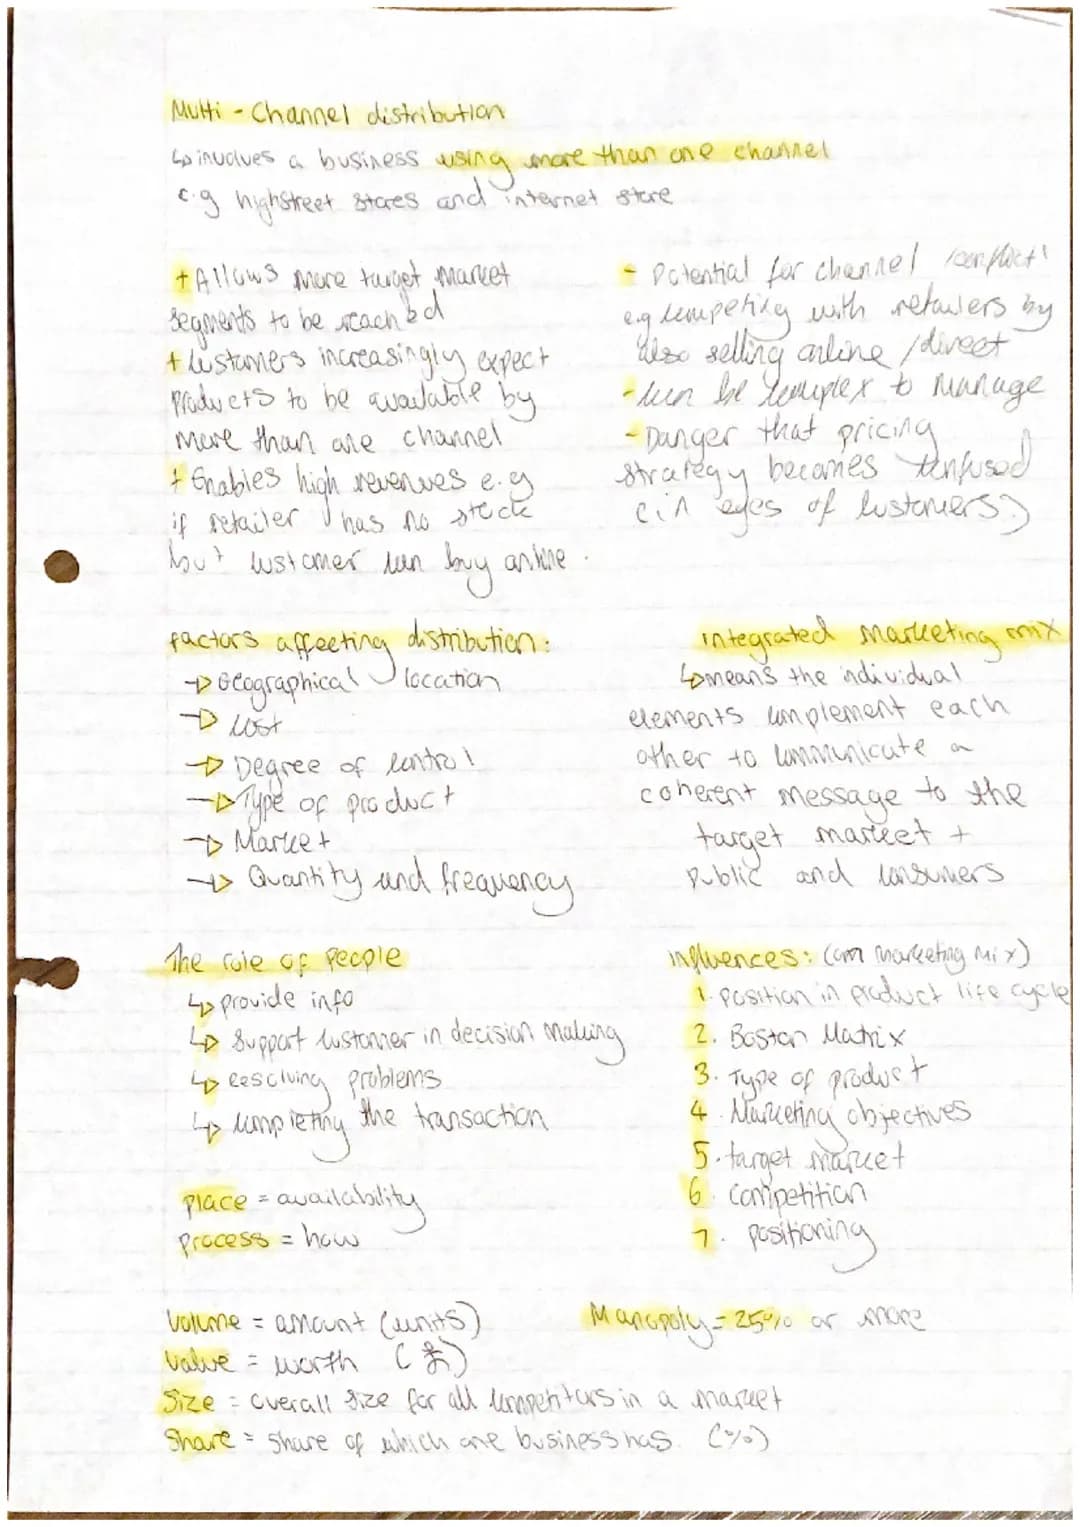 Multi - Channel distribution
↳ involves a business using more than one channel
e.g highstreet stores and internet store
+ Allows more target market
segments to be reached
+ Customers increasingly expect
products to be available by
more than one channel
+ Enables high revenues e.g
if retailer has no stock
but customer can buy online.
- Potential for channel 'conflict'
e.g competing with retailers by
also selling online / direct
- can be complex to manage
- Danger that pricing
strategy becomes confused
(in eyes of customers)
factors affecting distribution:
→ Geographical location
→ Cost
→ Degree of control
→ Type of product
→ Market
→ Quantity and frequency
integrated marketing mix
↳ means the individual
elements complement each
other to communicate a
coherent message to the
target market +
public and consumers
The role of people
↳ provide info
↳ Support customer in decision making
↳ resolving problems
↳ completing the transaction
place = availability
process = how
influences: (on marketing mix)
1. position in product life cycle
2. Boston Matrix
3. Type of product
4. Marketing objectives
5. target market
6. competition
7. positioning
Volume = amount (units)
Value = worth (£)
Size = overall size for all competitors in a market
Share = share of which one business has. (%)
Monopoly = 25% or more